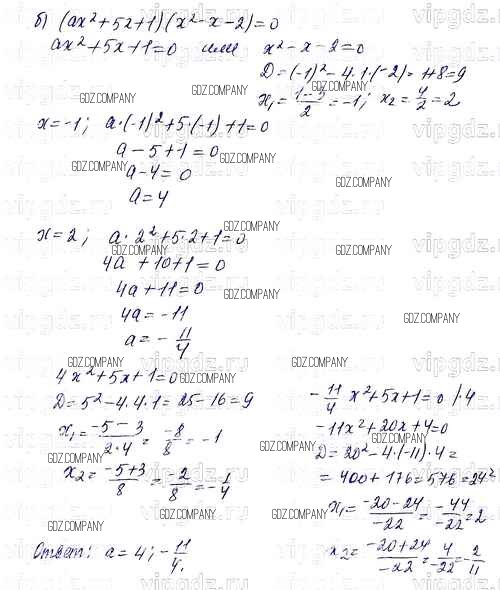 б) (ax²+5x+1)(x²-x-2)=0
ax²+5x+1=0 или x²-x-2=0
D=(-1)²-4·1·(-2)=1+8=9
x₁=(1-3)/2=-1; x₂=4/2=2
x=-1; a·(-1)²+5·(-1)+1=0
a-5+1=0
a-4=0
a=4
x=2; a·2²+5·2+1=0
4a+10+1=0
4a+11=0
4a=-11
a=-11/4
4x²+5x+1=0
D=5²-4·4·1=25-16=9
x₁=(-5-3)/(2·4)=-8/8=-1
x₂=(-5+3)/8=-2/8=-1/4
-11/4 x²+5x+1=0 /·4
-11x²+20x+4=0
D=20²-4·(-11)·4=
=400+176=576=24²
x₁=(-20-24)/-22=-44/-22=2
x₂=(-20+24)/-22=4/-22=-2/11
Ответ: a=4; -11/4.
GDZ.COMPANY
vipgdz.ru